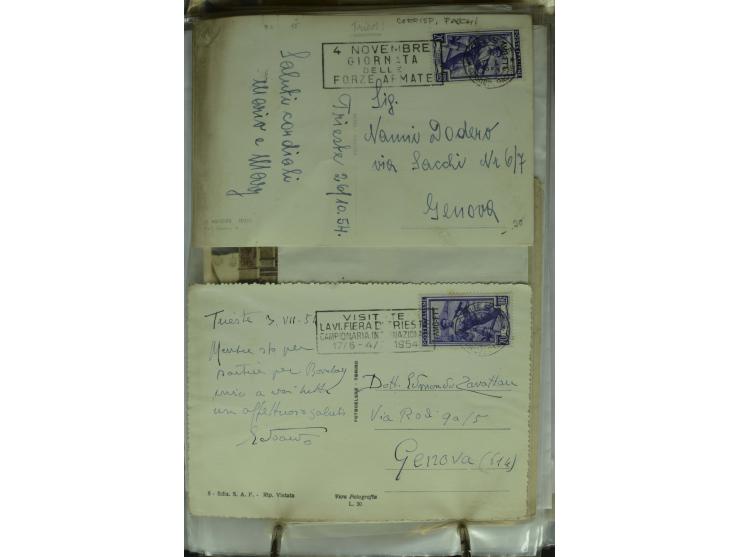 Triest
CORRISP. FACCHI
4 NOVEMBRE
GIORNATA
DELLE
FORZE ARMATE
Saluti cordiali
Mario e Mary
Trieste 26/10.54.
Sig.
Nanni Dodero
via Sacchi Nr 6/7
Genova
VISITATE
LA VI. FIERA DI TRIESTE
CAMPIONARIA INTERNAZIONALE
17/6-4/ 1954
Trieste 3 VII-54
Mentre sto per
partire per Bombay
invio a voi tutti
un affettuoso saluto
Edoardo
FOTOCELERE TORINO
Dott. Edmondo Zavattari
Via Rodi 9a/5
Genova (614)
8 - Ediz. S. A. F. - Rip. Vietata
Vera Fotografia
L. 30